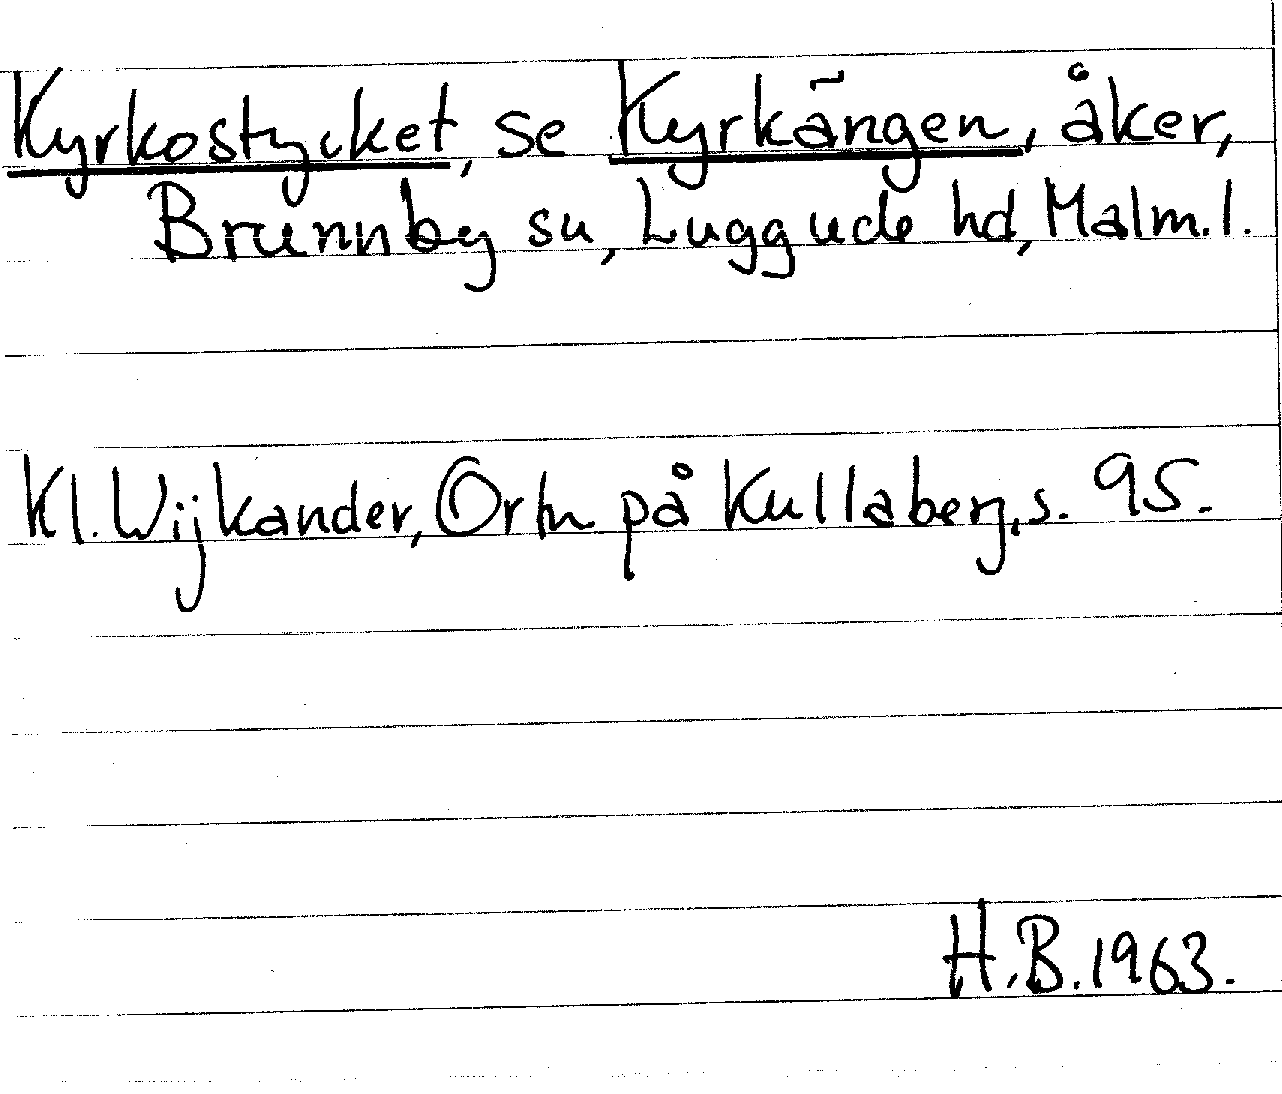 Kyrkostycket, se Kyrkängen, åker,
Brunnby sn, Luggude hd, Malm. l.
Kl. Wijkander, Ortn på Kullaberg, s. 95.
H.B. 1963.